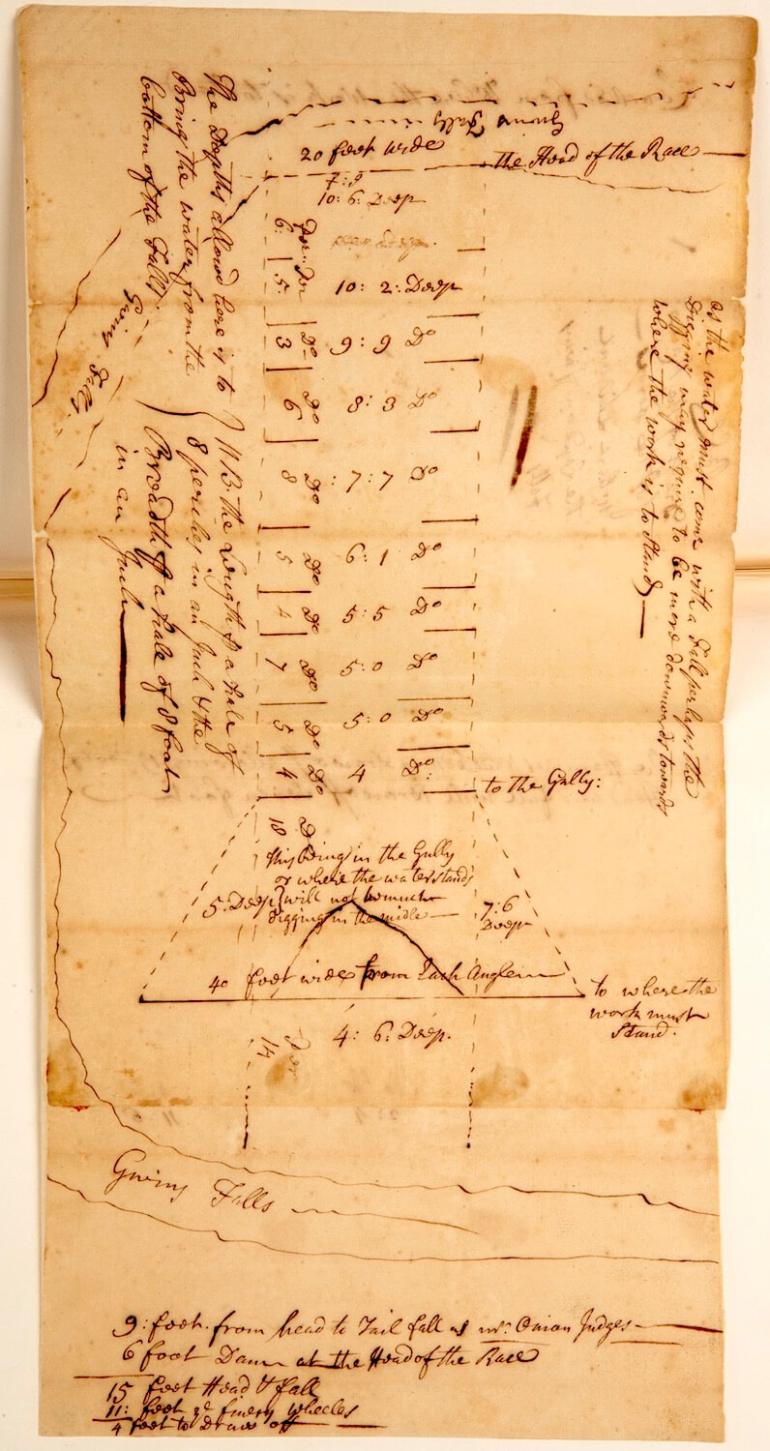 Gwins Falls
20 foot wide
the Head of the Race
7:9
10: 6: Deep
6: Per Do
10: 2: Deep
5: Per
3 Do 9: 9 Do
6 Do 8: 3 Do
8 Do 7: 7 Do
5 Do 6: 1 Do
4 Do 5: 5 Do
7 Do 5: 0 Do
5 Do 5: 0 Do
4 Do 4 Do:
to the Gully:
18 D
this being in the Gully
or where the water stands
5: Deep will not be much
digging in the midle
7: 6
Deep
40 foot wide from Each Angle
to where the
work must
Stand.
4: 6: Deep.
14 Per
The Depths allowed here is to
Bring the water from the
bottom of the Falls
Gwins Falls
NB. the Length of a Scale of
8 perches in an Inch & the
Breadth of a Scale of 8 foot
in an Inch
as the water must come with a Fall perhaps the
Digging may require to be more downwards towards
where the work is to Stand
Gwins Falls
9: foot from head to Tail fall as mr. Onion Judges
6 foot Dam at the Head of the Race
15 foot Head & fall
11: foot ye finery wheeles
4 foot to Draw off